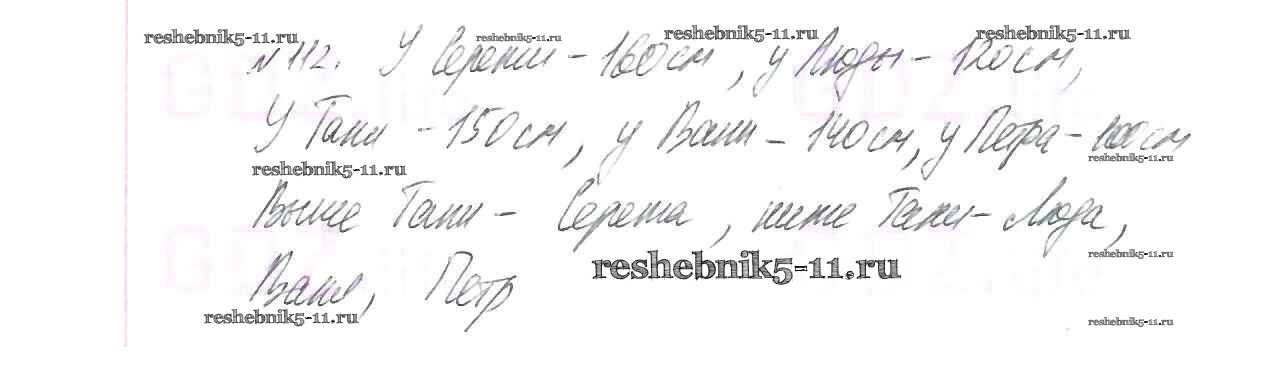 reshebnik5-11.ru reshebnik5-11.ru reshebnik5-11.ru reshebnik5-11.ru
№112. У Сережи - 160см, у Люды - 120см,
У Тани - 150см, у Вани - 140см, у Петра - 100см
reshebnik5-11.ru reshebnik5-11.ru
Выше Тани - Сережа, ниже Тани - Люда,
reshebnik5-11.ru reshebnik5-11.ru
Ваня, Петр
reshebnik5-11.ru reshebnik5-11.ru